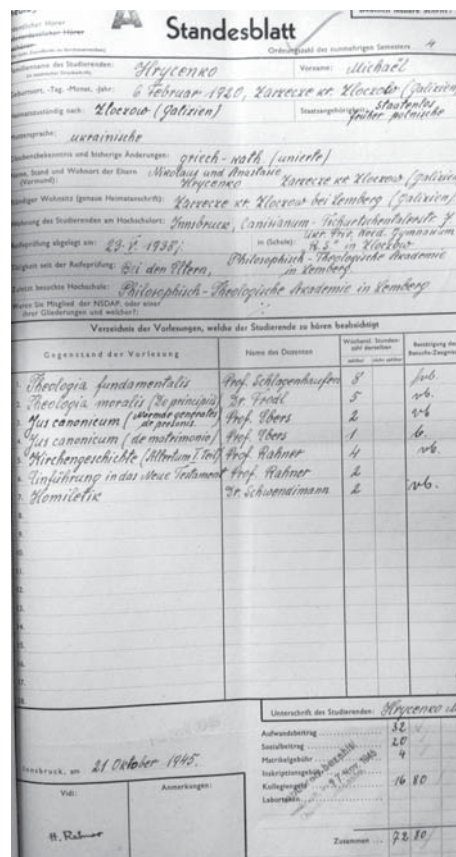 Standesblatt
Ordnungszahl des nunmehrigen Semesters 4
Familienname des Studierenden: Hrycenko Vorname: Michaël
Geburtsort, -Tag, -Monat, -Jahr: 6 Februar 1920, Zarzecze kr. Zloczow (Galizien)
Heimatzuständig nach: Zloczow (Galizien) Staatsangehörigkeit: Staatenlos
früher polnische
Muttersprache: ukrainische
Glaubensbekenntnis und bisherige Änderungen: griech-kath (unierte)
Name, Stand und Wohnort der Eltern Nikolaus und Anastasie
(Vormund): Hrycenko Zarzecze kr Zloczow (Galizien
Ständiger Wohnsitz (genaue Heimatanschrift): Zarzecze kr. Zloczow bei Lemberg (Galizien)
Wohnung des Studierenden am Hochschulort: Innsbruck, Canisianum - Tschurtschentalerstr 7.
Reifeprüfung abgelegt am: 23.V.1938; in (Schule): Ukr. Priv. Gymnasium
in Zloczow
Tätigkeit seit der Reifeprüfung: Bei den Eltern, Philosophisch-Theologische Akademie
in Lemberg
Zuletzt besuchte Hochschule: Philosophisch-Theologische Akademie in Lemberg
Waren Sie Mitglied der NSDAP. oder einer
ihrer Gliederungen und welcher?:
Verzeichnis der Vorlesungen, welche der Studierende zu hören beabsichtigt
Gegenstand der Vorlesung Name des Dozenten Wöchentl. Stunden-
zahl derselben Bestätigung des
Besuchs-Zeugnis
1. Theologia fundamentalis Prof. Schlagenhaufen 8 vb.
2. Theologia moralis (De principiis) Dr. Frodl 5 vb.
3. Jus canonicum (Normae generales
de personis. Prof. Ebers 2 vb
4. Jus canonicum (de matrimonio) Prof. Ebers 1 b.
5. Kirchengeschichte (Altertum I. Teil) Prof. Rahner 4 vb.
6. Einführung in das Neue Testament Prof. Rahner 2
7. Homiletik Dr. Schwendimann 2 vb.
8.
9.
10.
11.
12.
13.
14.
15.
16.
17.
18.
Unterschrift des Studierenden: Hrycenko
Aufwandsbeitrag 32
Sozialbeitrag 20
Matrikelgebühr 4
Inskriptionsgebühr
Kollegiengeld 16 80
Labortaxen
bezahlt
Nov. 1945
Innsbruck, am 21 Oktober 1945.
Vidi: Anmerkungen:
H. Rahner
Zusammen ... 72 80